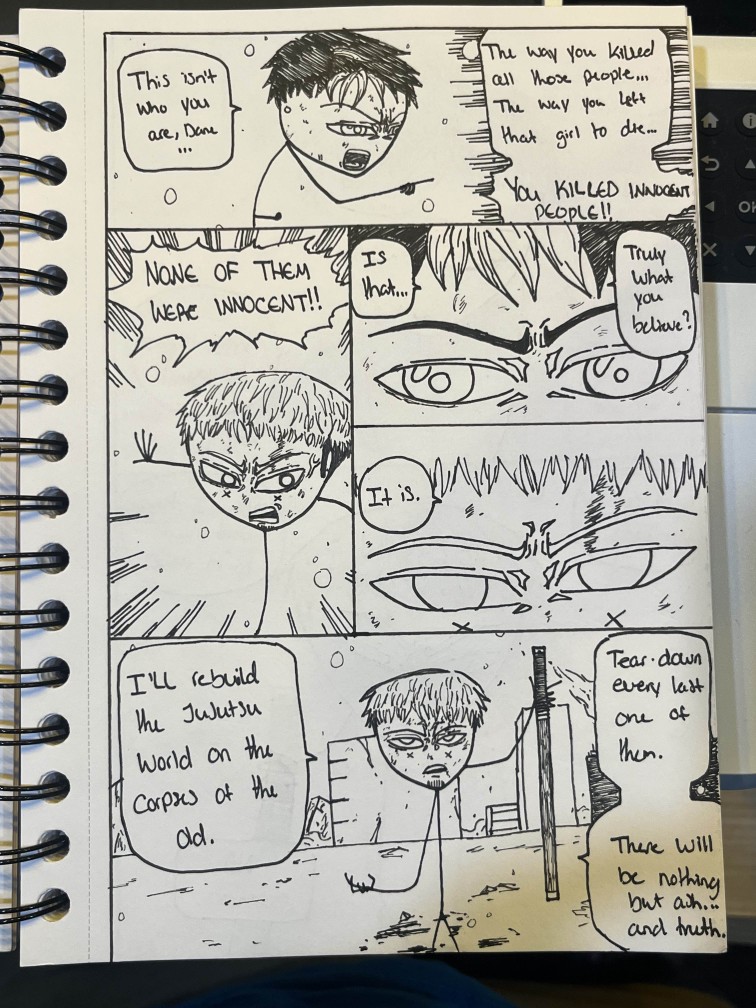 This isn't
who you
are, Dane
...
The way you killed
all those people...
The way you left
that girl to die...
YOU KILLED INNOCENT
PEOPLE!!
NONE OF THEM
WERE INNOCENT!!
Is
that...
Truly
what
you
believe?
It is.
I'LL rebuild
the Jujutsu
World on the
corpses of the
old.
Tear down
every last
one of
them.
There will
be nothing
but ash...
and truth.
OK